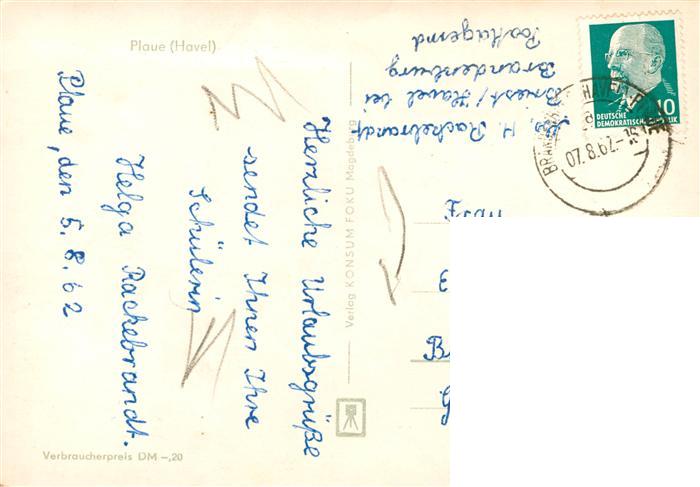 Plaue (Havel)
Plaue, den 5.8.62
Herzliche Urlaubsgrüße
sendet Ihnen Ihre
Schülerin
Helga Rackebrandt.
H. Rackebrandt
Briest/Havel bei
Brandenburg
Postlagernd
Verlag KONSUM FOKU Magdeburg
Verbraucherpreis DM -,20
10
DEUTSCHE
DEMOKRATISCHE REPUBLIK
07.8.62.-16